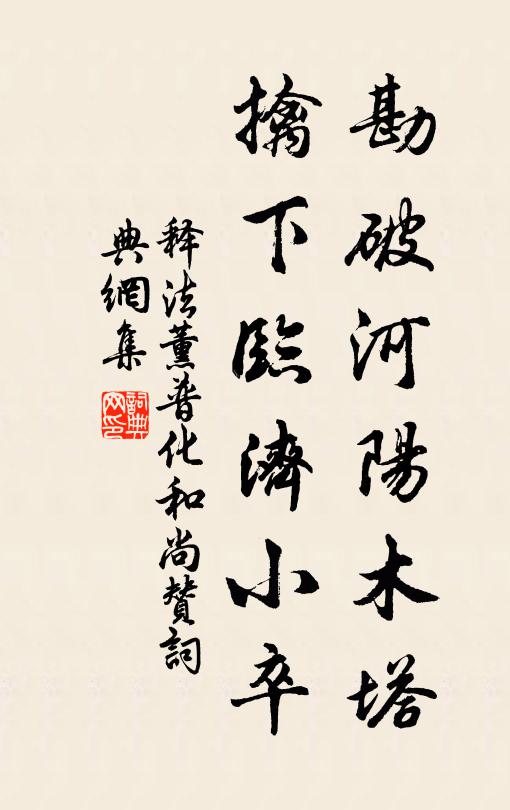 勘破河陽木塔
擒下臨濟小卒
释法薰普化和尚赞詞
典網集
詞典
网印